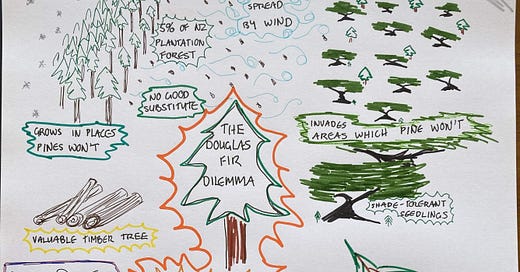 SPREAD
BY WIND
5% OF NZ
PLANTATION
FOREST
NO GOOD
SUBSTITUTE
GROWS IN PLACES
PINES WON'T
THE
DOUGLAS
FIR
DILEMMA
INVADES
AREAS WHICH PINE WON'T
SHADE-TOLERANT
SEEDLINGS
VALUABLE TIMBER TREE